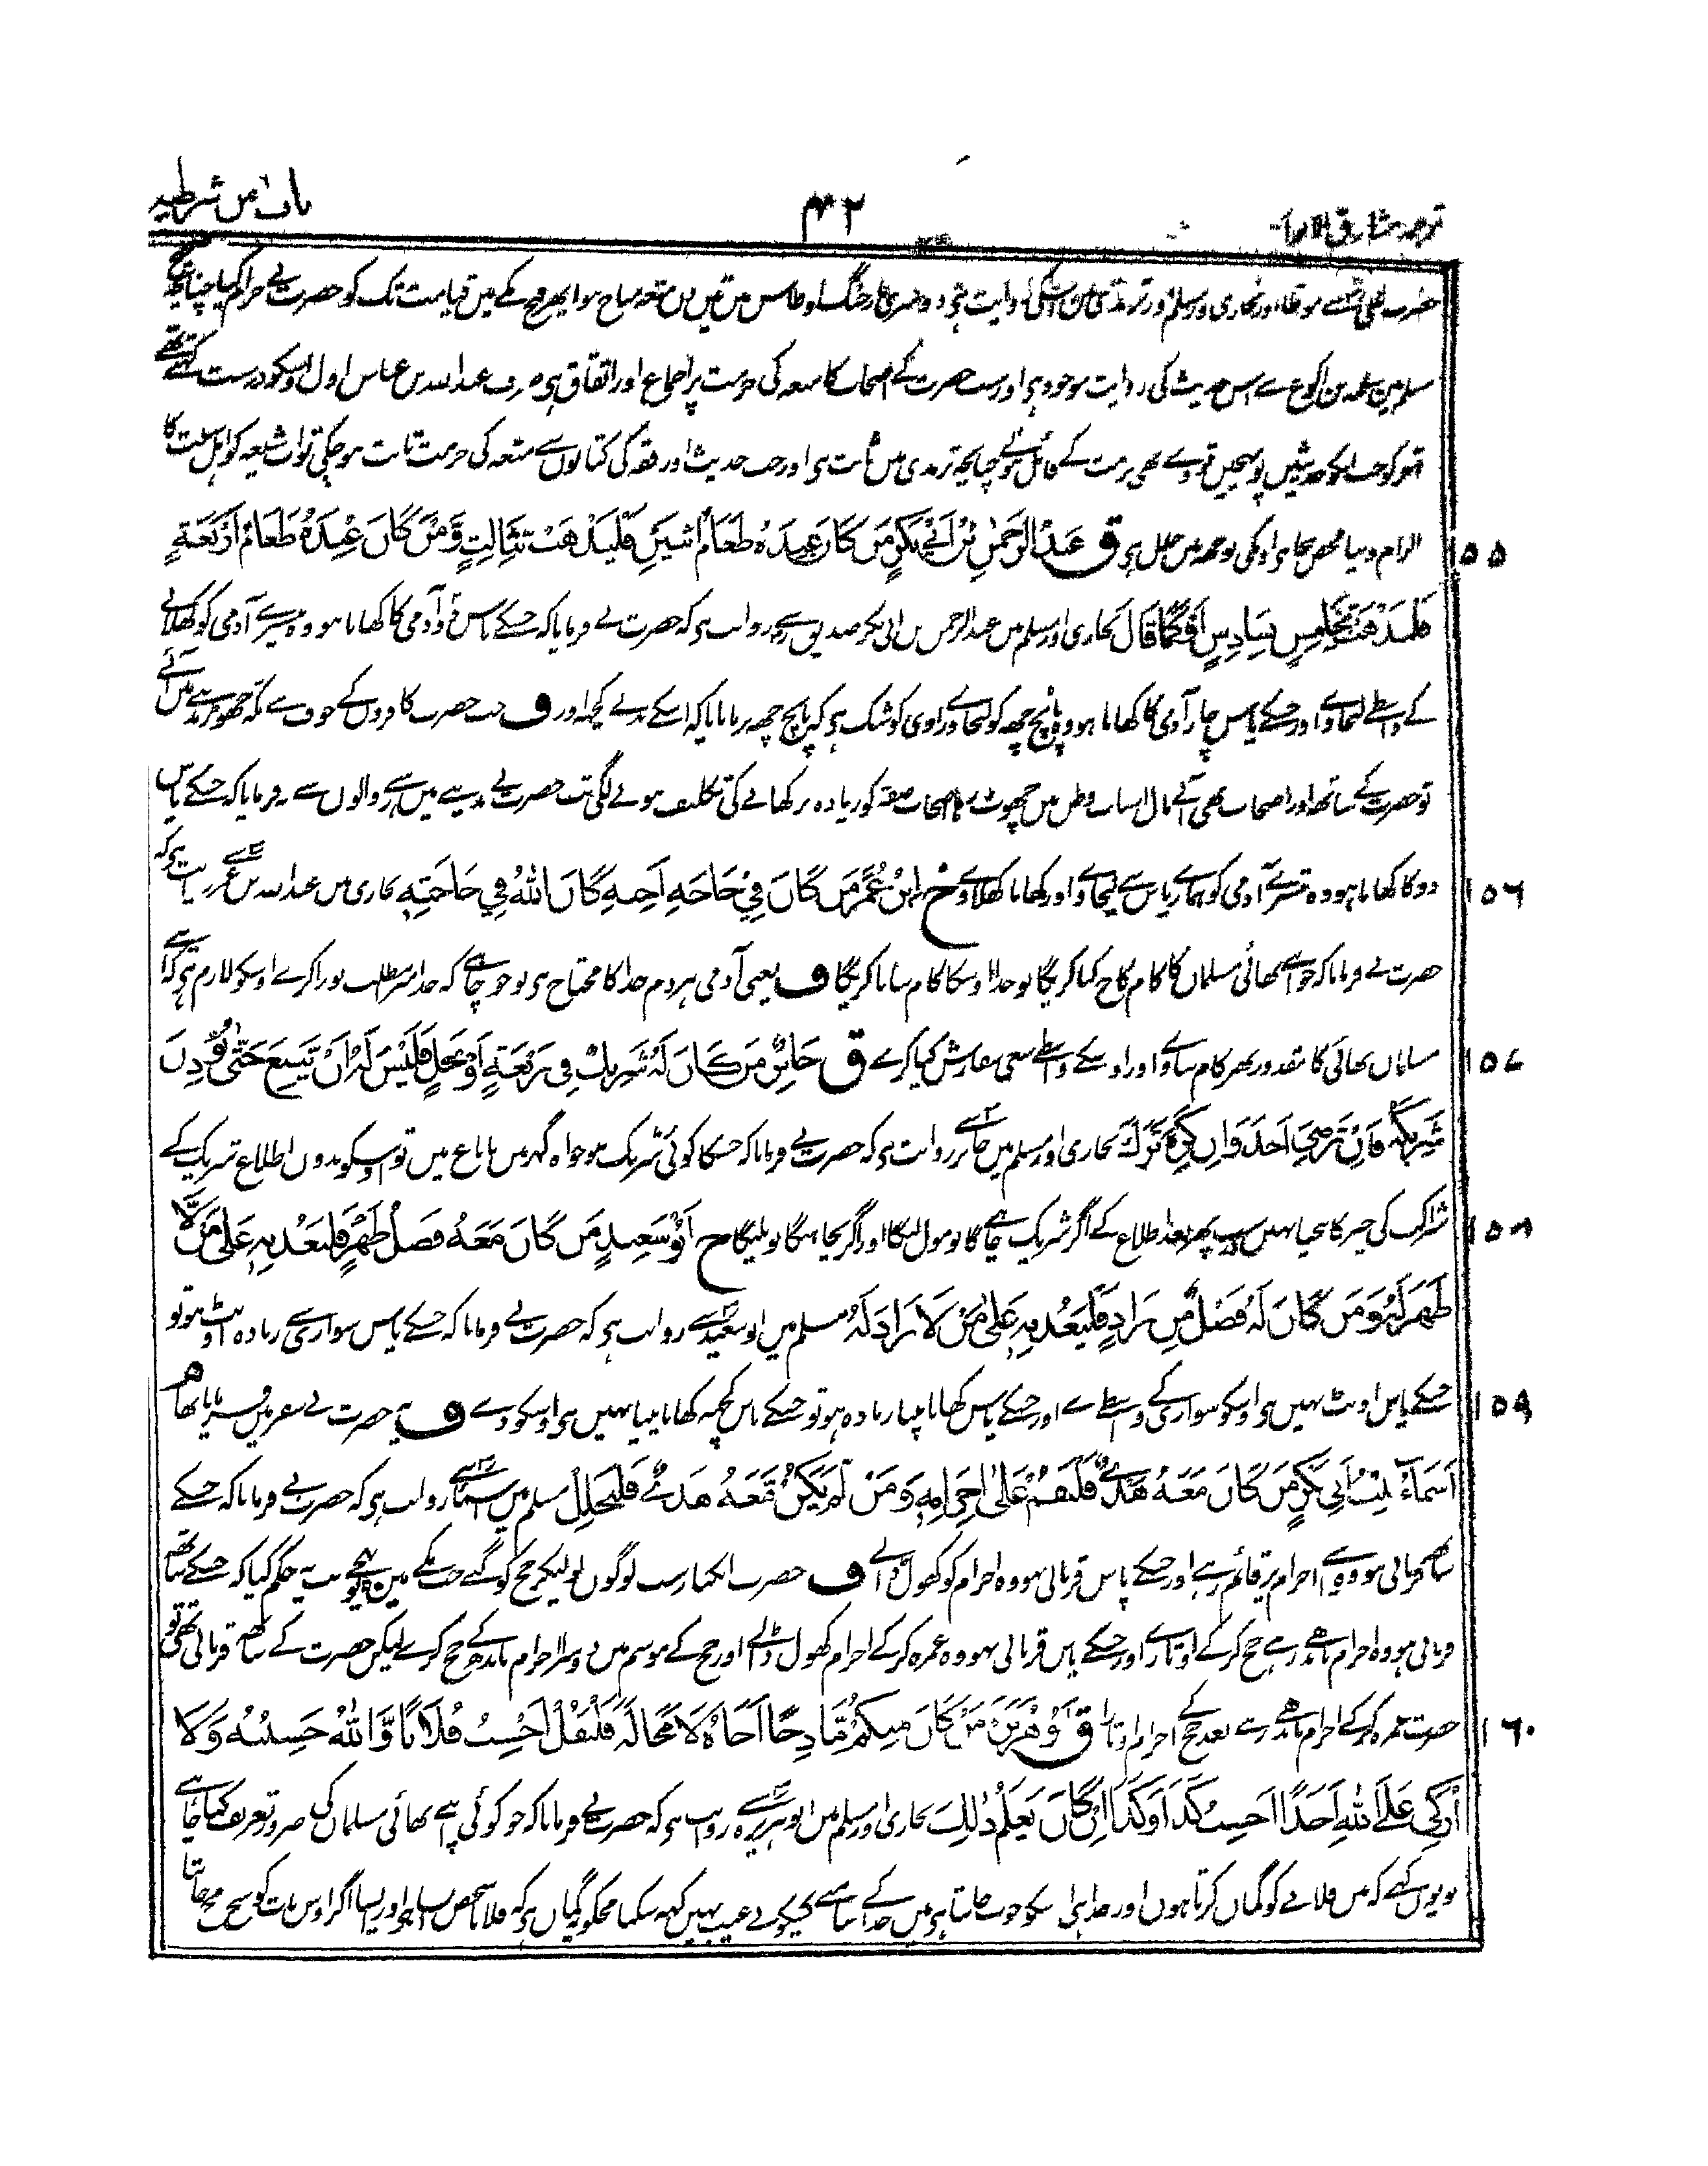 باب من شرطیہ
۴۲
ترجمہ مشارق الانوار
حضرت علی سے موطا اور بخاری اور مسلم اور ترمذی میں اسکی روایت ہی دوسری جنگ اوطاس میں تین دن متعہ مباح ہوا پھر فتح مکے میں قیامت تک کو حضرت نے حرام کیا چنانچہ
مسلم میں سلمہ بن اکوع سے اس حدیث کی روایت موجود ہی اور سب حضرت کے اصحاب کا متعہ کی حرمت پر اجماع اور اتفاق ہی صرف عبد اللہ بن عباس اول اوسکو درست کہتے تھے
پھر جب اونکو حدیثیں پہنچیں تو وے بھی حرمت کے قائل ہوئے چنانچہ ترمذی میں ثابت ہی اور جب حدیث اور فقہ کی کتابوں سے متعہ کی حرمت ثابت ہو چکی تو اب شیعہ کو اہل سنت کا
۱۵۵ الزام دینا محض بیجا ہی اونکی بوجھ میں خلل ہی ق عَبْدُ الرَّحْمٰنِ بْنُ اَبِیْ بَکْرٍ مَنْ کَانَ عِنْدَہٗ طَعَامُ اثْنَیْنِ فَلْیَذْھَبْ بِثَالِثٍ وَّمَنْ کَانَ عِنْدَہٗ طَعَامُ اَرْبَعَۃٍ
فَلْیَذْھَبْ بِخَامِسٍ بِسَادِسٍ اَوْ کَمَا قَالَ بخاری اور مسلم میں عبد الرحمن بن ابی بکر صدیق سے روایت ہی کہ حضرت نے فرمایا کہ جسکے پاس دو آدمی کا کھانا ہو وہ تیسرے آدمی کو کھلانے
کے واسطے لیجاوے اور جسکے پاس چار آدمی کا کھانا ہو وہ پانچ چھہ کو لیجاوے راوی کو شک ہی کہ پانچ چھہ فرمایا یا کہ اسکے بدلے کچھ اور ف جب حضرت کافروں کے خوف سے مکہ چھوڑ مدینے میں آئے
تو حضرت کے ساتھ اور اصحاب بھی آئے مال اسباب وطن میں چھوٹ رہا اصحاب صفہ کو زیادہ تر کھانے کی تکلیف ہونے لگی تب حضرت نے مدینے میں رہنے والوں سے فرمایا کہ جسکے پاس
۱۵۶ دو کا کھانا ہو وہ تیسرے آدمی کو ہمارے پاس سے لیجاوے اور کھانا کھلاوے خ ابْنُ عُمَرَ مَنْ کَانَ فِیْ حَاجَۃِ اَخِیْہِ کَانَ اللّٰہُ فِیْ حَاجَتِہٖ بخاری میں عبد اللہ بن عمر سے روایت ہی کہ
حضرت نے فرمایا کہ جو اپنے بھائی مسلمان کا کام کاج کیا کریگا تو خدا اوسکا کام بنایا کریگا ف یعنی آدمی ہر دم خدا کا محتاج ہی تو جو چاہے کہ خدا میرا مطلب پورا کرے اوسکو لازم ہی کہ اپنے
۱۵۷ مسلمان بھائی کا مقدور بھر کام بناوے اور اوسکے واسطے سعی سفارش کیا کرے ق جَابِرٌ مَنْ کَانَ لَہٗ شَرِیْکٌ فِیْ رَبْعَۃٍ اَوْ نَخْلٍ فَلَیْسَ لَہٗ اَنْ یَّبِیْعَ حَتّٰی یُؤْذِنَ
شَرِیْکَہٗ فَاِنْ رَضِیَ اَخَذَ وَاِنْ کَرِہَ تَرَکَ بخاری اور مسلم میں جابر سے روایت ہی کہ حضرت نے فرمایا کہ جسکا کوئی شریک ہو خواہ گہر میں یا باغ میں تو اوسکو بدون اطلاع شریک کے
۱۵۸ شراکت کی چیز کا بیچنا نہیں پھر بعد اطلاع کے اگر شریک چاہے گا تو مول لیگا اور اگر نچاہیگا تو نلیگا م اَبُوْ سَعِیْدٍ مَنْ کَانَ مَعَہٗ فَضْلُ ظَھْرٍ فَلْیَعُدْ بِہٖ عَلٰی مَنْ لَّا
ظَھْرَ لَہٗ وَمَنْ کَانَ لَہٗ فَضْلٌ مِّنْ زَادٍ فَلْیَعُدْ بِہٖ عَلٰی مَنْ لَا زَادَ لَہٗ مسلم میں ابو سعید سے روایت ہی کہ حضرت نے فرمایا کہ جسکے پاس سواری سے زیادہ اونٹ ہو تو
۱۵۹ جسکے پاس اونٹ نہیں ہی اوسکو سواری کے واسطے دے اور جسکے پاس کھانا پینا زیادہ ہو تو جسکے پاس کچھ کھانا پینا نہیں ہی اوسکو دے ف یہ حضرت نے سفر میں فرمایا تھا م
اَسْمَاءُ بِنْتُ اَبِیْ بَکْرٍ مَنْ کَانَ مَعَہٗ ھَدْیٌ فَلْیَقُمْ عَلٰی اِحْرَامِہٖ وَمَنْ لَّمْ یَکُنْ مَّعَہٗ ھَدْیٌ فَلْیَحْلِلْ مسلم میں اسما سے روایت ہی کہ حضرت نے فرمایا کہ جسکے
ساتھ قربانی ہو وہ احرام پر قائم رہے اور جسکے پاس قربانی نہو وہ احرام کو کھول ڈالے ف حضرت ایکبار سب لوگوں کو لیکر حج کو گئے جب مکے میں پہنچے تب یہ حکم کیا کہ جسکے ساتھ
قربانی ہو وہ احرام باندھے رہے حج کرکے اوتارے اور جسکے پاس قربانی نہو وہ عمرہ کرکے احرام کھول ڈالے اور حج کے موسم میں دوسرا احرام باندھکے حج کرے لیکن حضرت کے ساتھ قربانی تھی تو
۱۶۰ حضرت عمرہ کرکے احرام باندھے رہے بعد حج کے احرام اوتارا ق اَبُوْ ھُرَیْرَۃَ مَنْ کَانَ مِنْکُمْ مَّادِحًا اَخَاہُ لَا مَحَالَۃَ فَلْیَقُلْ اَحْسِبُ فُلَانًا وَّاللّٰہُ حَسِیْبُہٗ وَلَا
اُزَکِّیْ عَلَی اللّٰہِ اَحَدًا اَحْسِبُ کَذَا وَکَذَا اِنْ کَانَ یَعْلَمُ ذٰلِکَ بخاری اور مسلم میں ابو ہریرہ سے روایت ہی کہ حضرت نے فرمایا کہ جو کوئی اپنے بھائی مسلمان کی ضرور تعریف کیا چاہے
تو یوں کہے کہ میں فلانے کو گمان کرتا ہوں اور خدا ہی اسکو خوب جانتا ہی میں خدا کے سامنے کسیکو بے عیب نہیں کہہ سکتا مجھکو یہ گمان ہی کہ فلانا شخص ایسا ہی اور ایسا اگر اوس بات کو سچ سچ جانتا